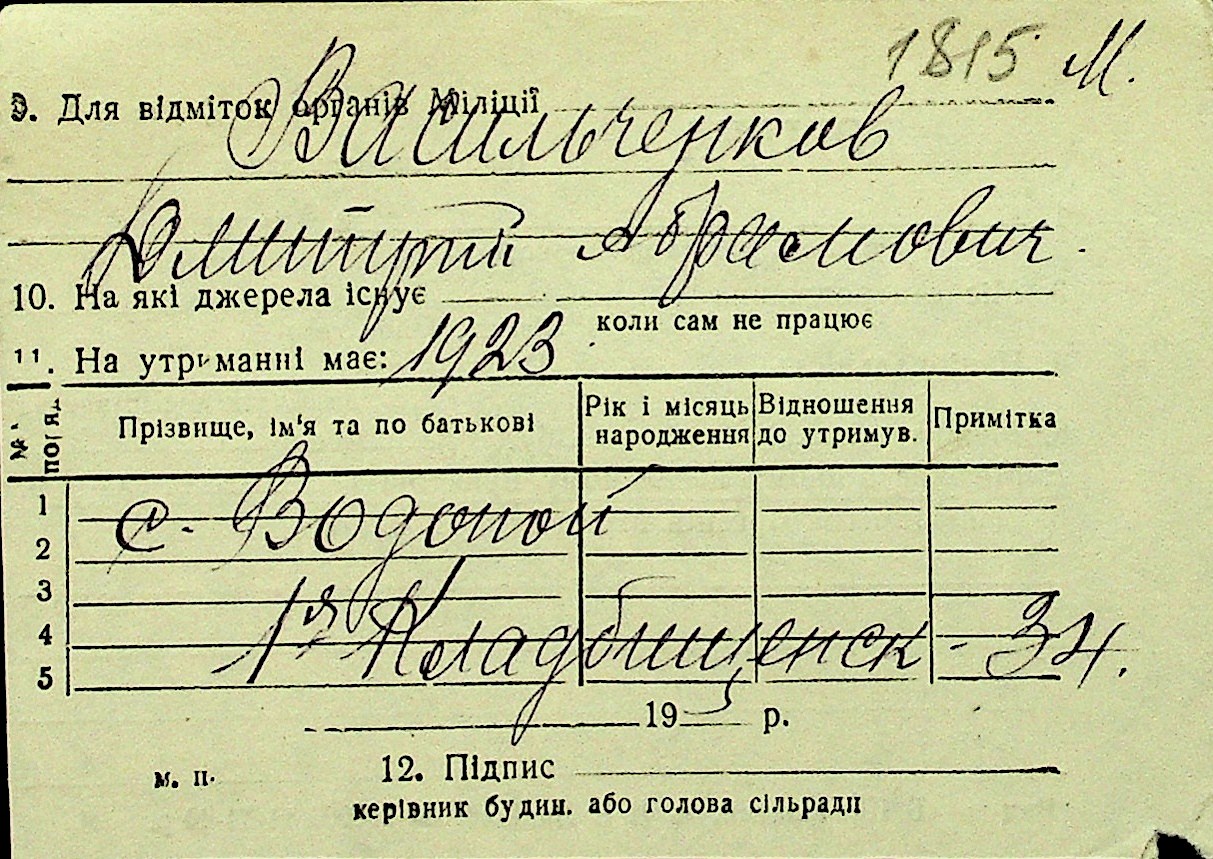 1815 М.
9. Для відміток органів Міліції
Васильченков
Дмитрий Абрамович.
10. На які джерела існує
коли сам не працює
11. На утриманні має: 1923
№ по яд. Прізвище, ім'я та по батькові Рік і місяць народження Відношення до утримув. Примітка
1
с. Водопой
2
3
4
1я Кладбищенск - 34.
5
19 р.
м. п. 12. Підпис
керівник будин. або голова сільради